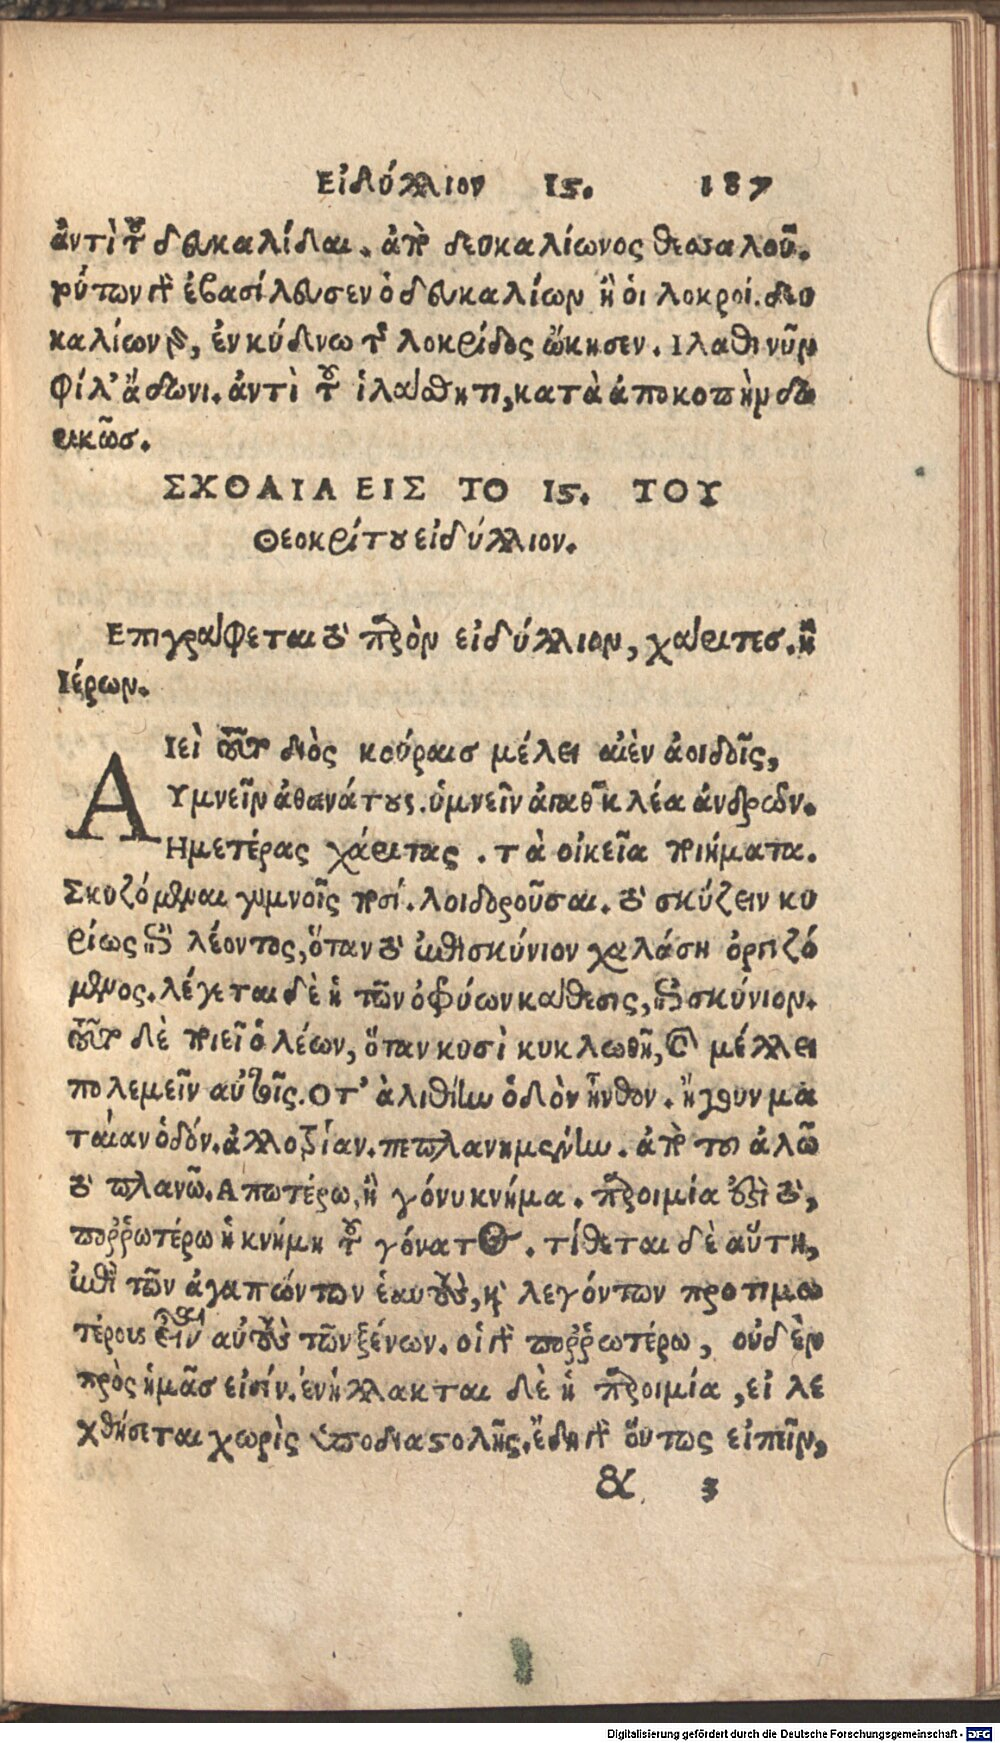 Εἰδύλλιον 15. 187
ἀντὶ τοῦ δευκαλίδαι. ἀπὸ δευκαλίωνος θεσσαλοῦ.
τούτων γὰρ ἐβασίλευσεν ὁ δευκαλίων ἢ οἱ λοκροί. δευ
καλίων γὰρ, ἐν κύδνῳ τῆς λοκρίδος ᾤκησεν. Ιλαθι νῦν
φίλ' ἄδωνι. ἀντὶ τοῦ ἱλάσθητι, κατὰ ἀποκοπὴν δω
ρικῶς.
ΣΧΟΛΙΑ ΕΙΣ ΤΟ 15. ΤΟΥ
Θεοκρίτου εἰδύλλιον.
Επιγράφεται τὸ παρὸν εἰδύλλιον, χάριτες. ἢ
Ιέρων.
ΑΙεὶ τοῦτο διὸς κούραις μέλει αἰὲν ἀοιδοῖς,
Υμνεῖν ἀθανάτους. ὑμνεῖν ἀγαθῶν κλέα ἀνδρῶν.
Ημετέρας χάριτας. τὰ οἰκεῖα ποιήματα.
Σκυζόμεναι γυμνοῖς ποσί. λοιδοροῦσαι. τὸ σκύζειν κυ
ρίως ἐπὶ λέοντος, ὅταν τὸ ἐπισκύνιον χαλάσῃ ὀργιζό
μενος. λέγεται δὲ ἡ τῶν ὀφρύων κάθεσις, ἐπισκύνιον.
τοῦτο δὲ ποιεῖ ὁ λέων, ὅταν κυσὶ κυκλωθῇ, καὶ μέλλει
πολεμεῖν αὐτοῖς. Οτ' ἀλιθίην ὁδὸν ἦνθον. ἤγουν μα
ταίαν ὁδόν. ἀλλοξίαν. πεπλανημένην. ἀπὸ τοῦ ἀλῶ
τὸ πλανῶ. Απωτέρω, ἢ γόνυ κνήμα. παροιμία ἐστὶ τὸ,
πορρωτέρω ἡ κνήμη τοῦ γόνατος. τίθεται δὲ αὕτη,
ἐπὶ τῶν ἀγαπώντων ἑαυτοὺς, καὶ λεγόντων προτιμω
τέρους εἶναι αὐτοὺς τῶν ξένων. οἱ γὰρ πορρωτέρω, οὐδὲν
πρὸς ἡμᾶς εἰσίν. ἐνήλλακται δὲ ἡ παροιμία, εἰ λε
χθήσεται χωρὶς ὑποδιαστολῆς. ἔδει γὰρ οὕτως εἰπεῖν,
& 3
Digitalisierung gefördert durch die Deutsche Forschungsgemeinschaft - DFG